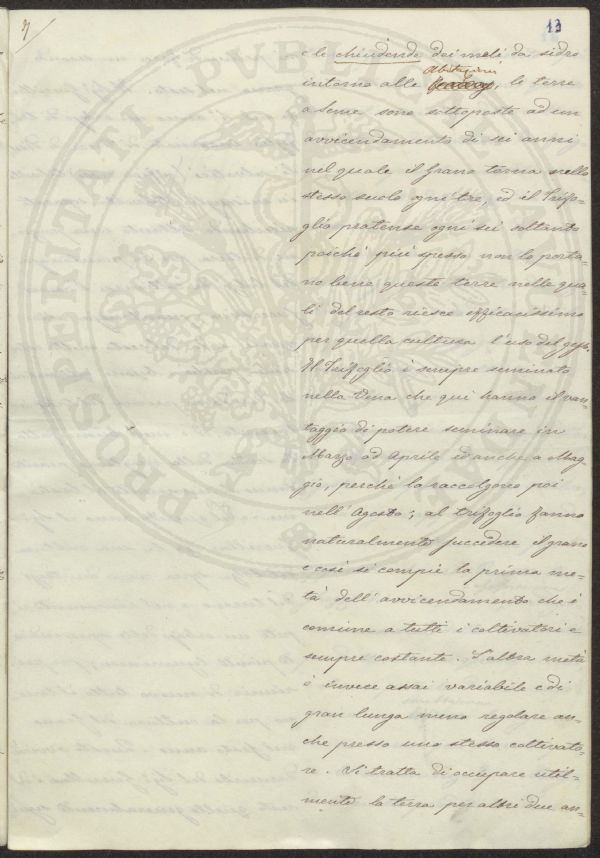 13
e le chiudende dei meli da sidro
abitazioni
intorno alle, le terre
a seme sono sottoposte ad un
avvicendamento di sei anni
nel quale il Grano torna nello
stesso suolo ogni tre, ed il Trifo=
glio pratense ogni sei soltanto
poichè più spesso non lo porta=
no bene queste terre nelle qua=
li del resto riesce efficacissimo
per quella cultura l'uso del gesso.
Il Trifoglio è sempre seminato
nella Vena che qui hanno il van=
taggio di potere seminare in
Marzo, ad Aprile ed anche a Mag=
gio, perchè la raccolgono poi
nell'Agosto; al trifoglio fanno
naturalmente succedere il grano
e così si compie la prima me=
tà dell'avvicendamento che è
comune a tutti i coltivatori e
sempre costante. L'altra metà
è invece assai variabile e di
gran lunga meno regolare an=
che presso uno stesso coltivato=
re. Si tratta di occupare util=
mente la terra per altri due an=
PROSPERITATI PVBLICAE AVGENDAE